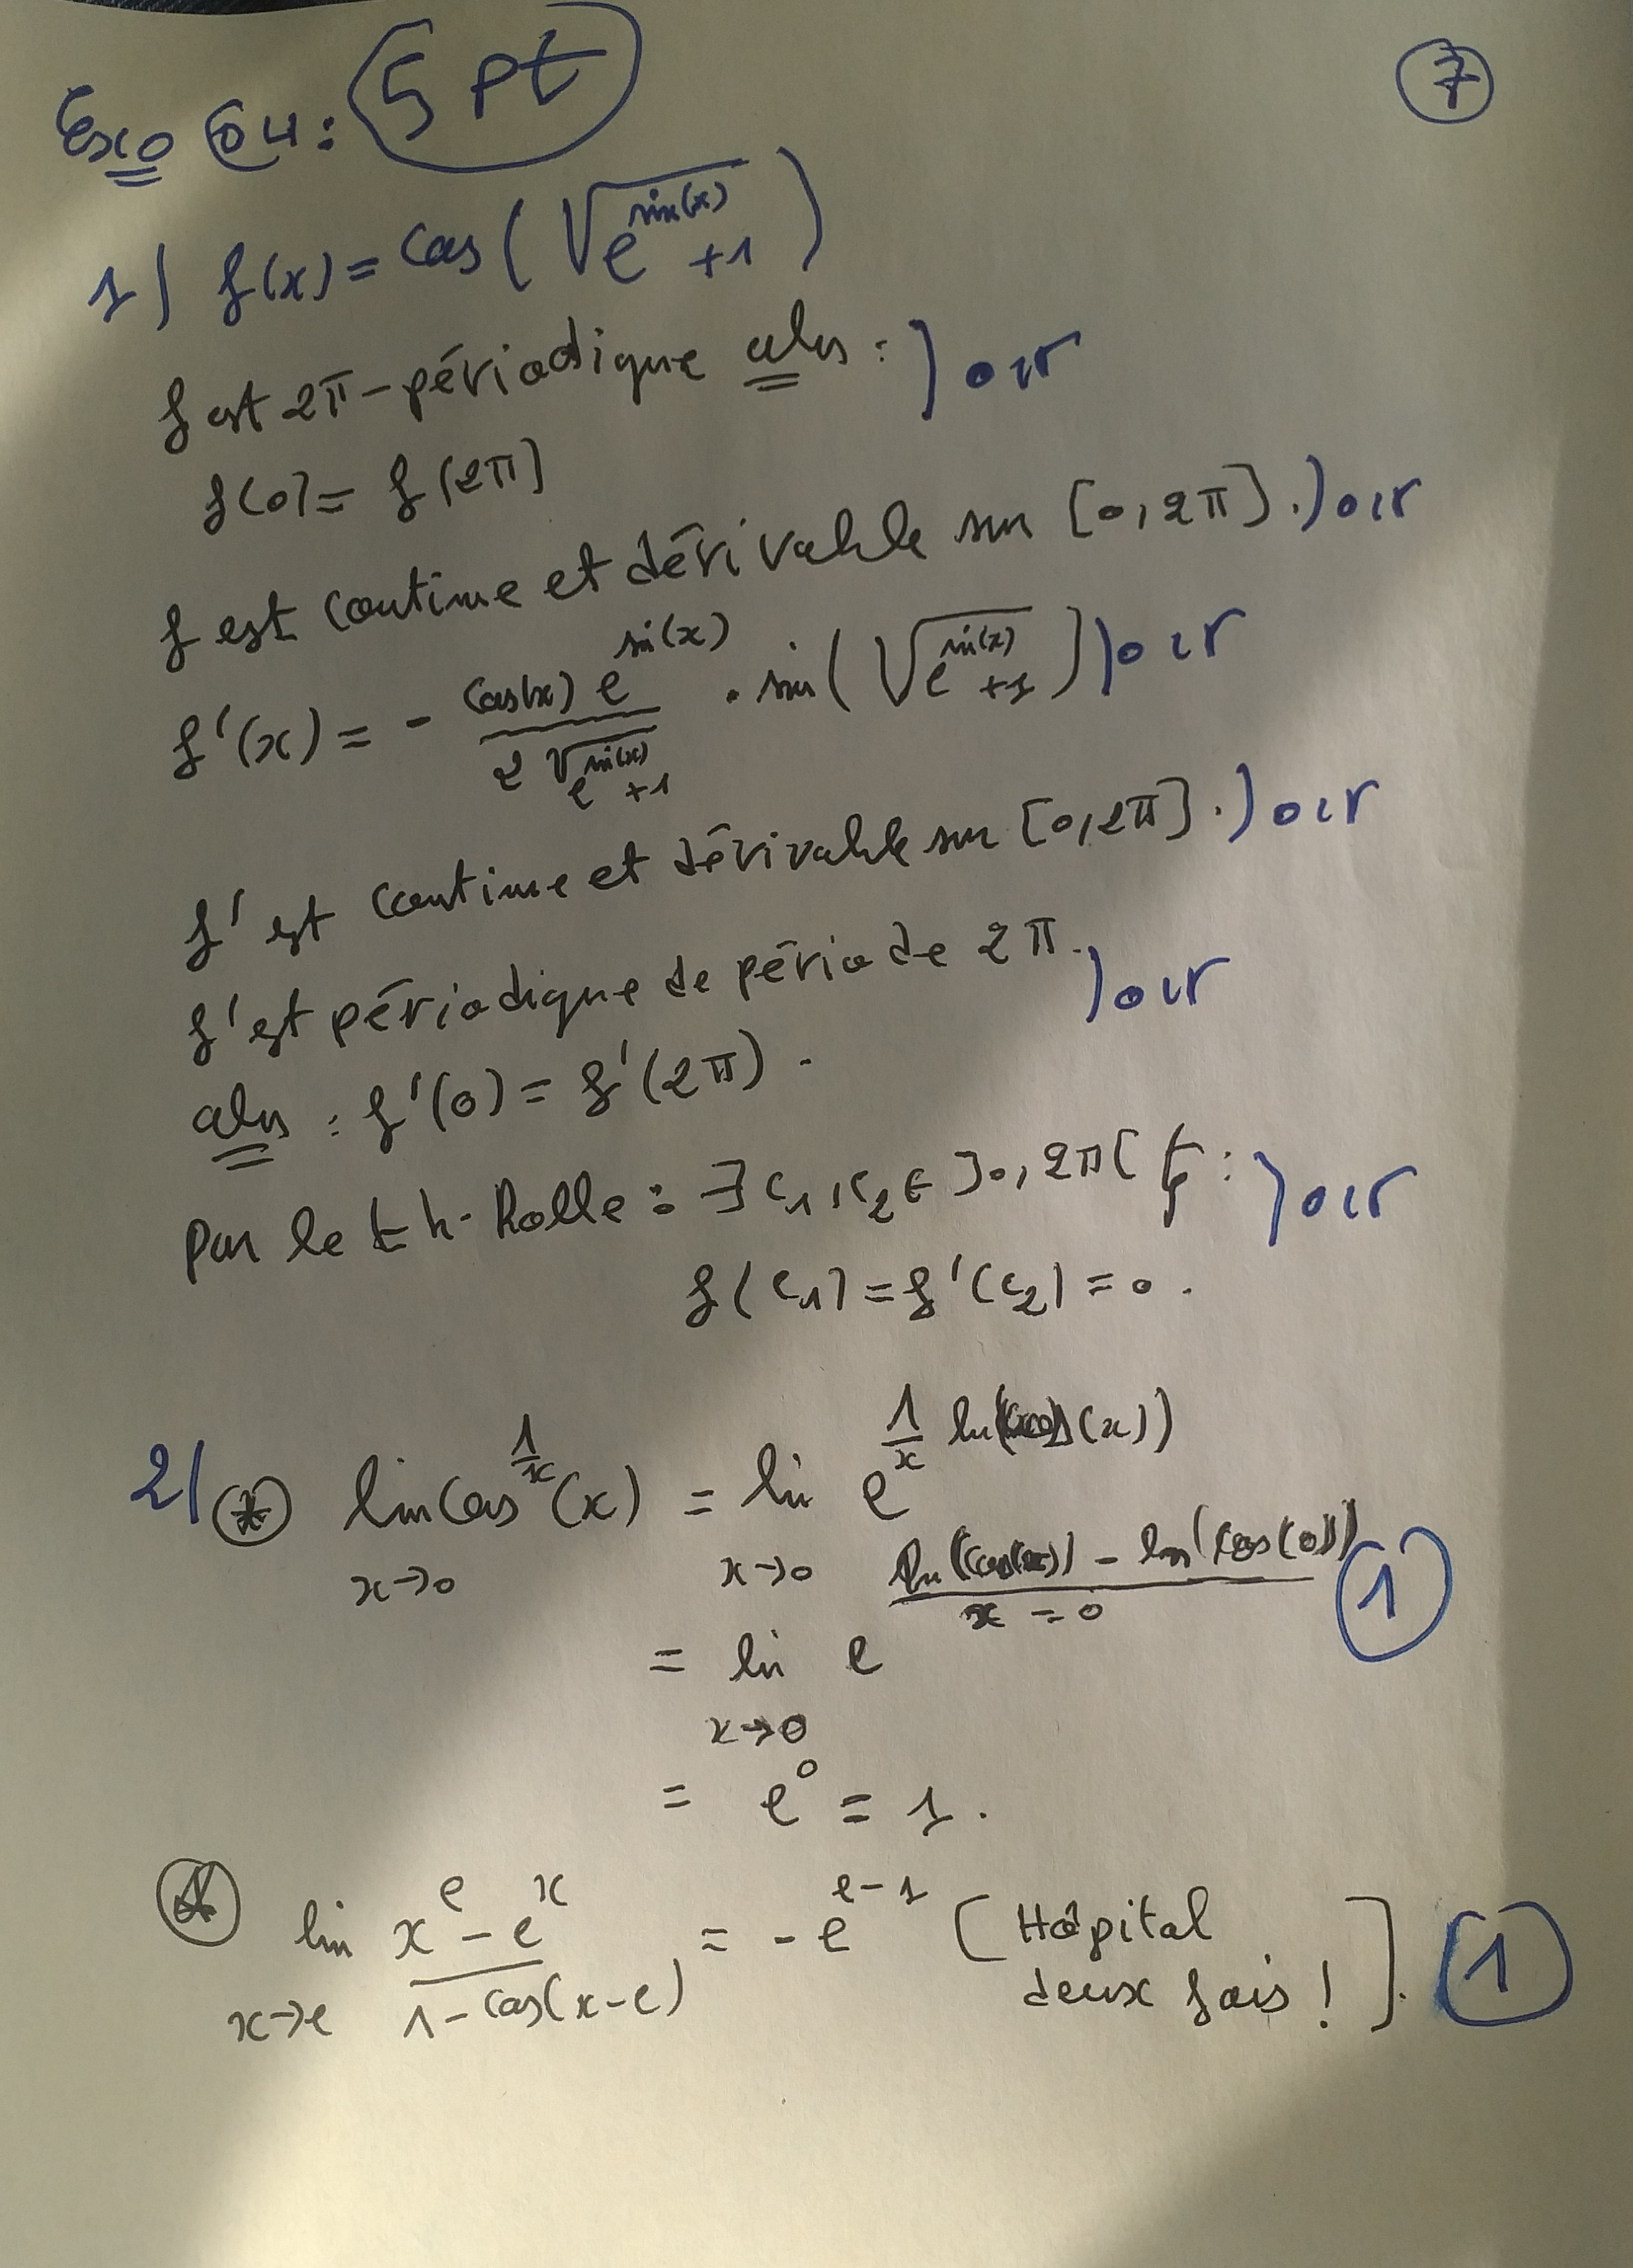 Exo 04: 5 pt
7
1) f(x) = cos(√(e^sin(x) +1))
f est 2π-périodique alors : ) 0,5
f(0) = f(2π)
f est continue et dérivable sur [0,2π]. ) 0,5
f'(x) = - (cos(x) e^sin(x)) / (2√(e^sin(x) +1)) . sin(√(e^sin(x) +1)) ) 0,5
f' est continue et dérivable sur [0,2π]. ) 0,5
f' est périodique de période 2π. ) 0,5
alors : f'(0) = f'(2π).
Par le th. Rolle : ∃ c₁, c₂ ∈ ]0, 2π[ tq : ) 0,5
f(c₁) = f'(c₂) = 0.
2) * lim x→0 cos^(1/x)(x) = lim x→0 e^(1/x ln(cos(x)))
= lim x→0 e^((ln(cos(x)) - ln(cos(0))) / (x - 0)) 1
= e^0 = 1.
* lim x→e (x^e - e^x) / (1 - cos(x-e)) = - e^(e-1) [Hôpital deux fois !]. 1